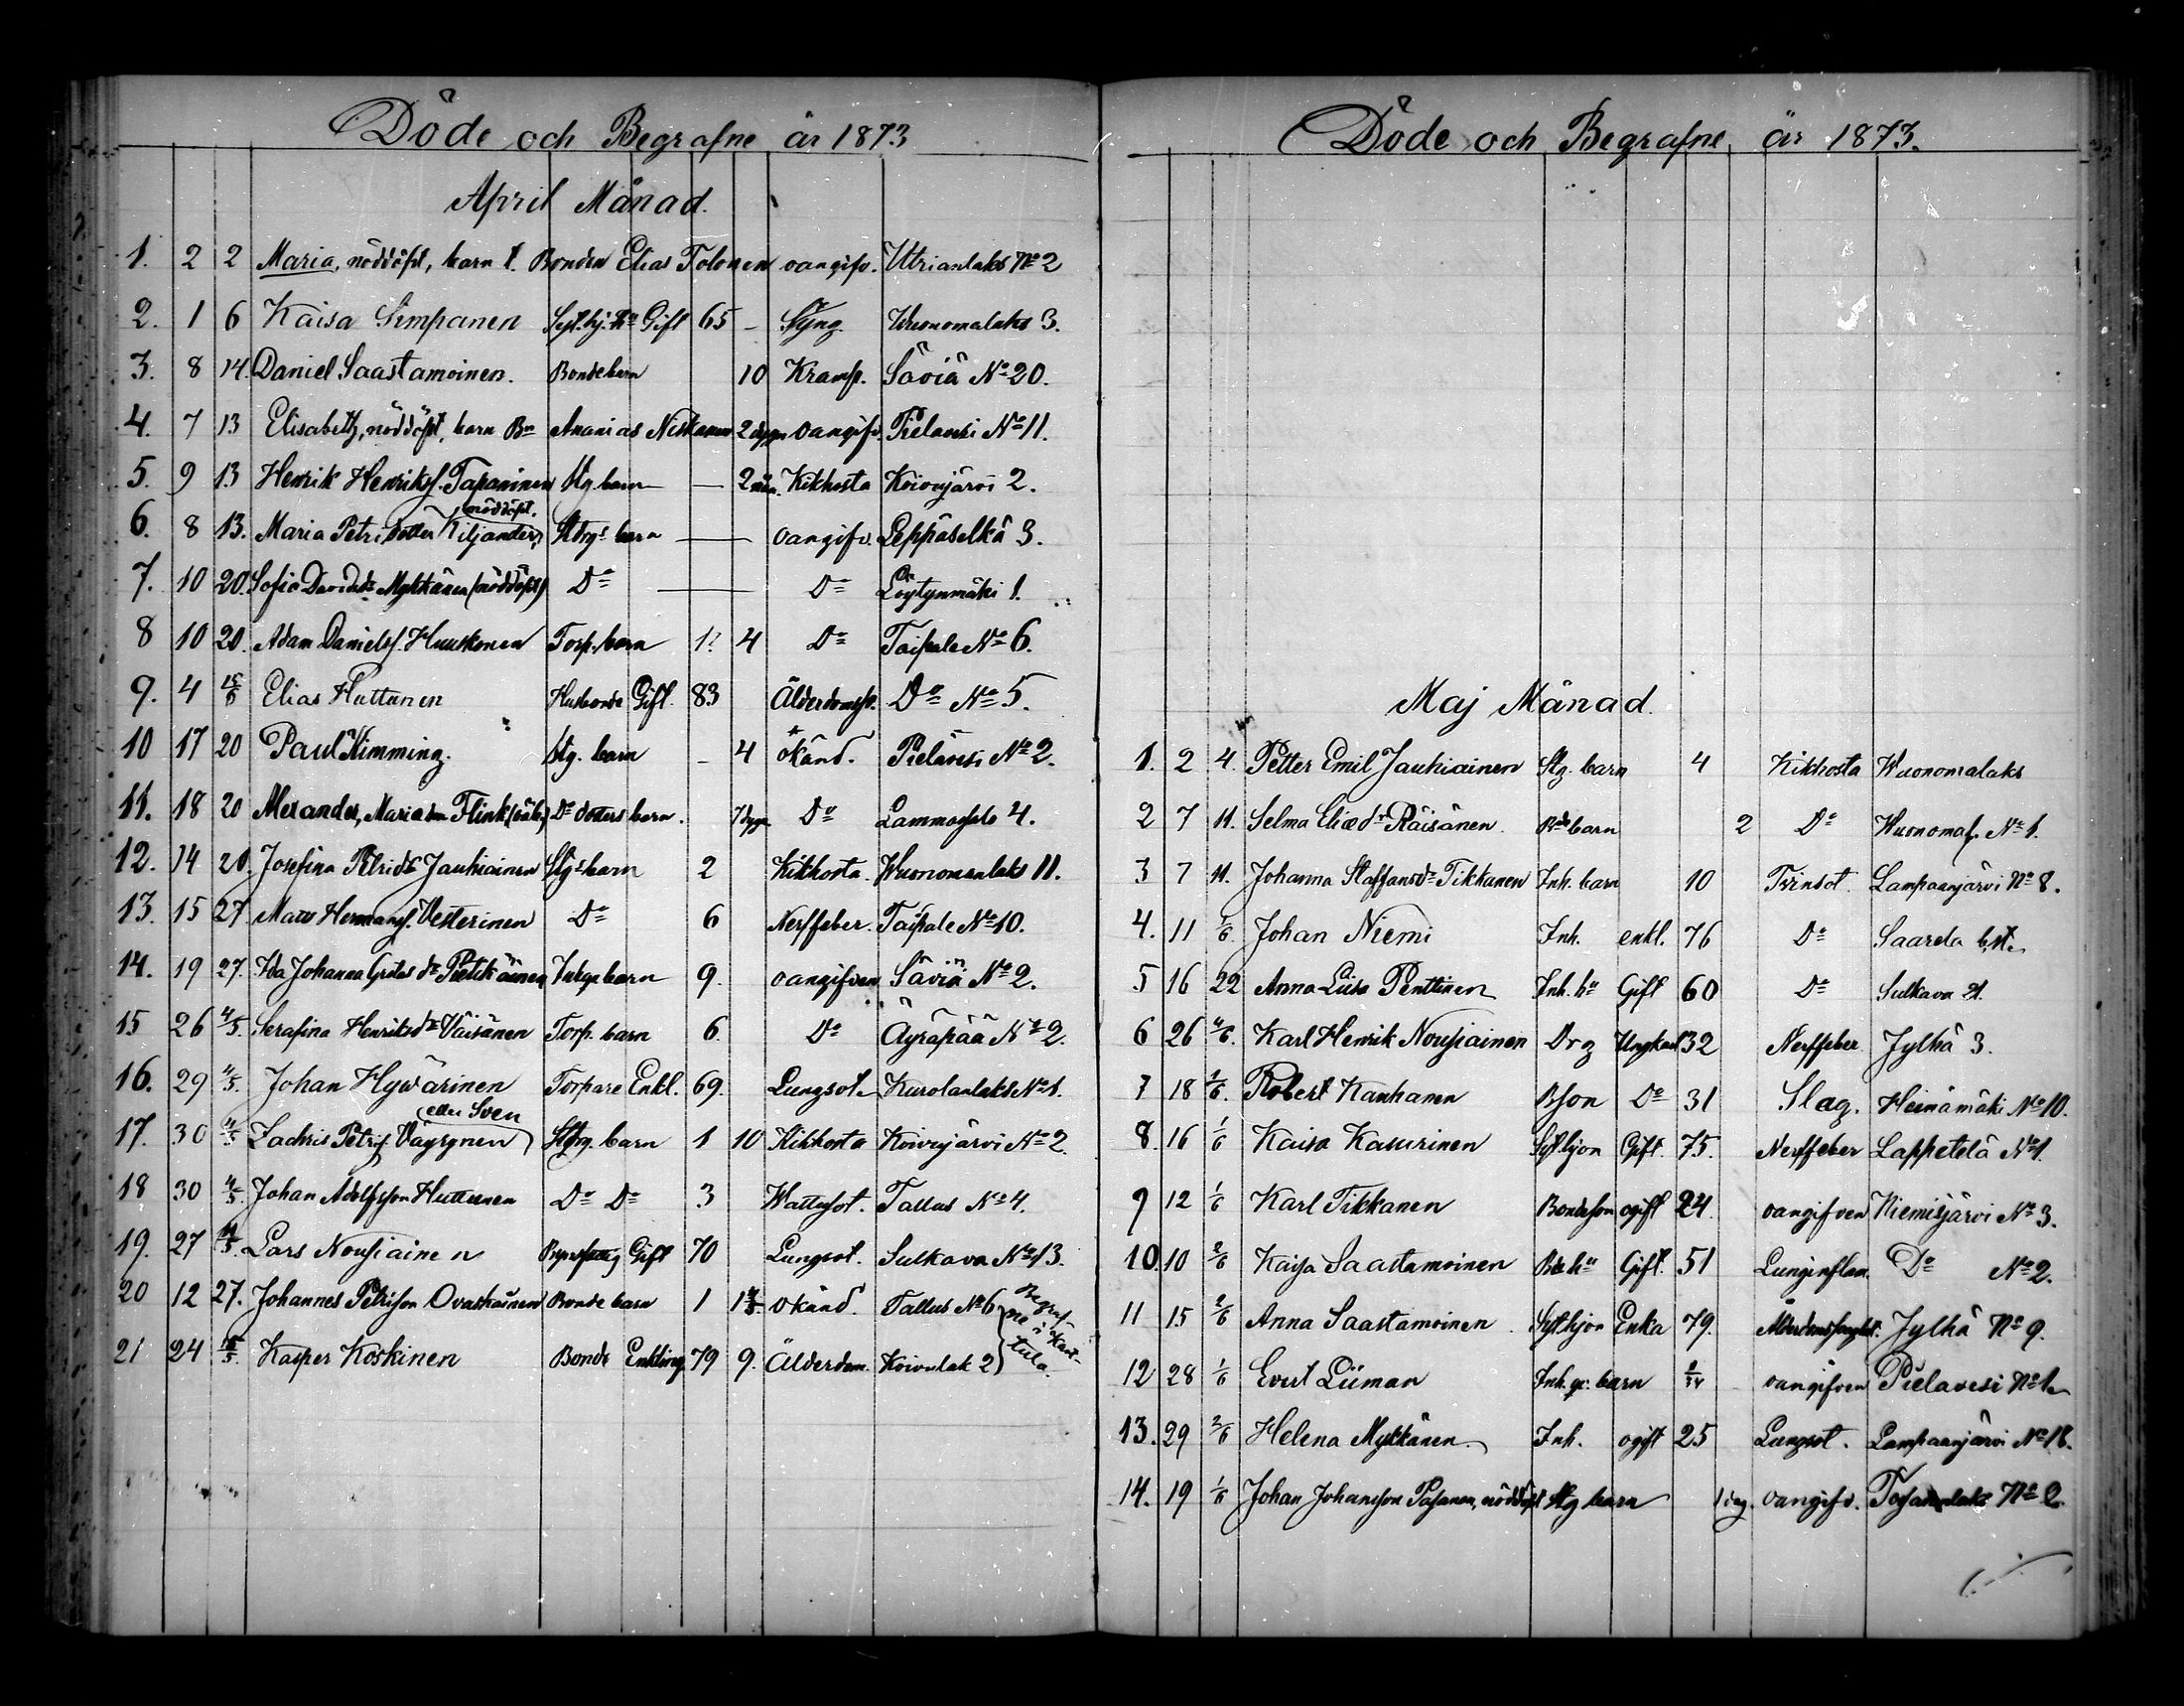 Döde och Begrafne år 1873
April Månad.
1. 2 2 Maria, nöddöpt, barn t. Bonden Elias Tolonen oangifv. Utrianlaks No 2
2. 1 6 Kaisa Simpanen Gift 65 - Styng. Wuonomalaks 3.
3. 8 14. Daniel Saastamoinen. Bondebarn 10 Kramp. Säviä No 20.
4. 7 13 Elisabeth, nöddöpt, barn Bn Ananias Niskanen 2 dygn oangifv. Pielavesi No 11.
5. 9 13 Henrik Henrikss. Tapaninen Stg. barn — 2 mån. Kikhosta Koivujärvi 2.
nöddöpt.
6. 8 13. Maria Petri dotter Kiljander, barn — oangifv. Leppäselkä 3.
7. 10 20. Sofia Davidsdr Mykkänen (nöddöpt) Do — Do Löytynmäki 1.
8 10 20. Adam Danielss. Huuskonen Torp. barn 1? 4 Do Taipale No 6.
9. 4 Elias Huttunen Husbonde Gift. 83 Älderdomsb. Do No 5.
10 17 20 Paul Kimming. Stg. barn - 4 okänd. Pielavesi No 2.
11. 18 20 Alexander, Maria Flink (oäkt.) Do dotters barn. 7 dygn Do Lammassalo 4.
12. 14 20. Josefina Petridr Jauhiainen Stgs barn 2 Kikhosta. Wuonomanlaks 11.
13. 15 27. Mats Hermanss. Vesterinen Do 6 Nerffeber. Taipale No 10.
14. 19 27. Ida Johanna Gretas dr Pietikäinen Inhys barn 9. oangifven Säviä No 2.
15 26 4/5. Serafina Henriksdr Väisänen Torp. barn 6. Do Äyräpää No 2.
16. 29 4/5. Johan Hyvärinen Torpare Enkl. 69. Lungsot. Kurolanlaks No 1.
eller Sven
17. 30 4/5 Zachris Petris. Väyrynen Stgrg. barn 1 10 Kikhosta Koivujärvi No 2.
18 30 4/5. Johan Adolfsson Huttunen Do Do 3 Wattusot. Tallus No 4.
19. 27 Lars Nousiainen Gift 70 Lungsot. Sulkava No 13.
20 12 27. Johannes Petrison Ovaskainen Bonde barn 1 okänd. Tallus No 6
21 24 Kasper Koskinen Bonde Enkling 79 9. Älderdom. Koivulak 2
Begraf-
ne i Kart-
tula.
Döde och Begrafne år 1873.
Maj Månad.
1. 2 4. Petter Emil Jauhiainen Stg. barn 4 Kikhosta Wuonomalaks
2 7 11. Selma Eliædr Räisänen Bde barn 2 Do Wuonomal. No 1.
3 7 11. Johanna Staffansdr Tikkanen Inh. barn 10 Tvinsot. Lampaanjärvi No 8.
4. 11 1/6. Johan Niemi Inh. enkl. 76 Do Saarela
5 16 22 Anna Liisa Penttinen Inh. hu Gift 60 Do Sulkava 21.
6 26 Karl Henrik Nousiainen Drg Ungkarl 32 Nerffeber Jylhä 3.
7 18 1/6. Robert Kauhanen Bson Do 31 Slag. Heinämäki No 10.
8. 16 1/6 Kaisa Kasurinen Sythjon Gift. 75. Nerffeber Lappetelä No 1.
9 12 1/6 Karl Tikkanen Bondeson ogift 24. oangifven Niemisjärvi No 3.
10. 10 2/6 Kaisa Saastamoinen Bde hu Gift. 51 Lunginflam. Do No 2.
11 15 2/6 Anna Saastamoinen Sythjon Enka 79. Jylhä No 9.
12 28 1/6 Evert Liiman Inh. barn oangifven Pielavesi No 1.
13. 29 2/6 Helena Mykkänen Inh. ogift 25 Lungsot. Lampaanjärvi No 18.
14. 19 1/6 Johan Johansson Pasanen, nöddöpt Stg barn 1 dag. oangifv. No 2.